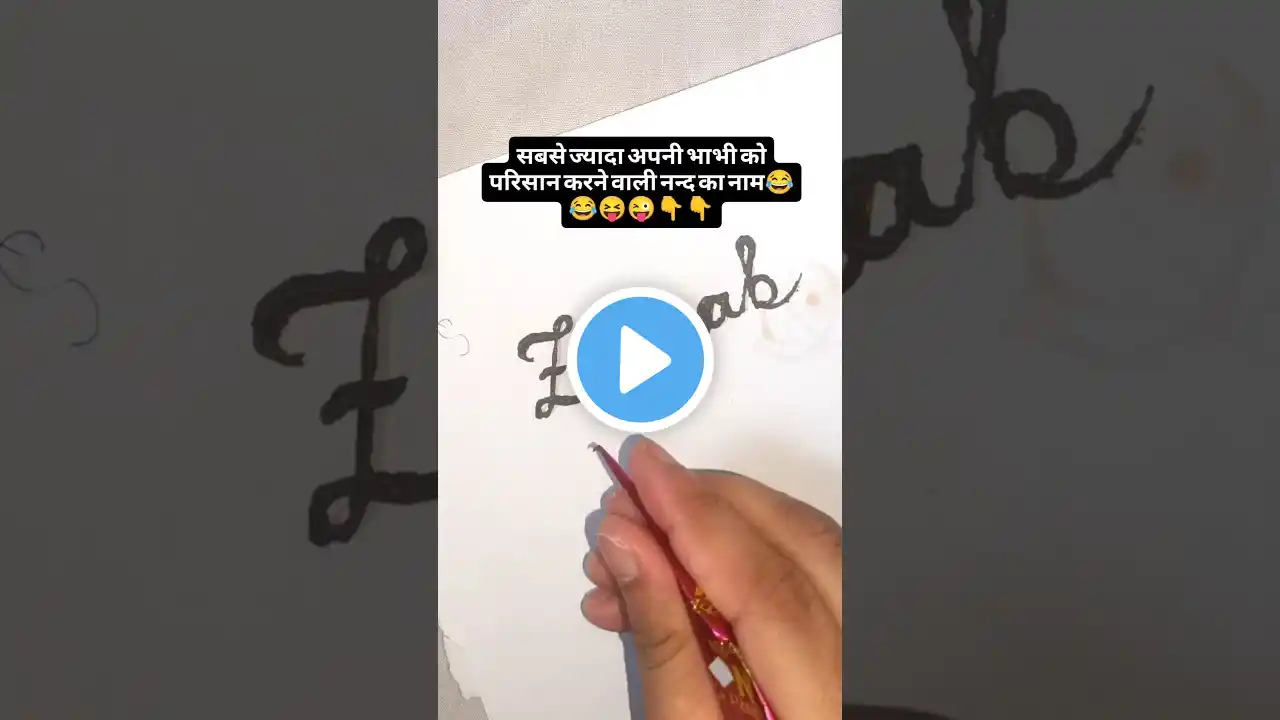 सबसे ज्यादा अपनी भाभी को
परिसान करने वाली नन्द का नाम😂
😂😝😜👇👇